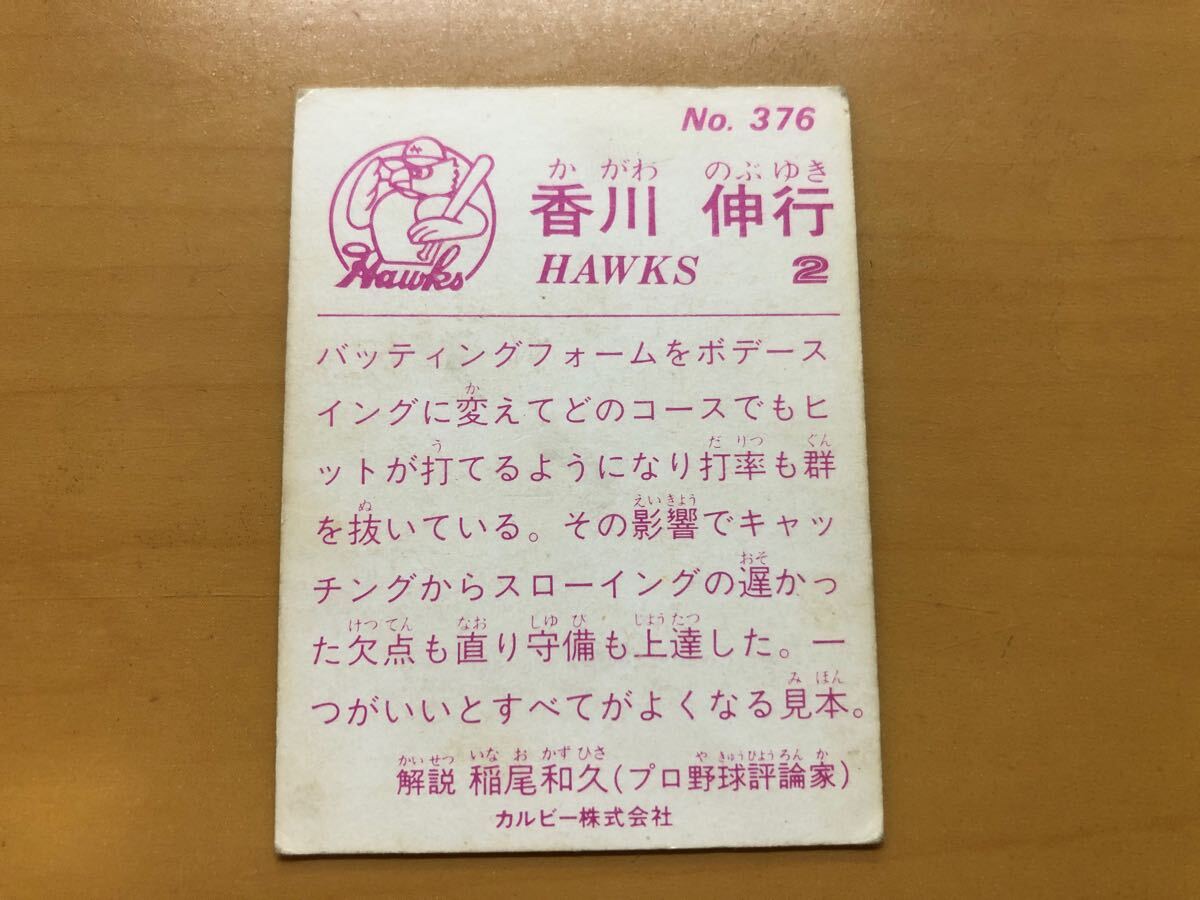 No. 376
か がわ のぶ ゆき
香川 伸行
Hawks
HAWKS 2
バッティングフォームをボデース
か
イングに変えてどのコースでもヒ
う だ りつ ぐん
ットが打てるようになり打率も群
ぬ えいきょう
を抜いている。その影響でキャッ
おそ
チングからスローイングの遅かっ
けつ てん なお しゆ び じょうたつ
た欠点も直り守備も上達した。一
み ほん
つがいいとすべてがよくなる見本。
かいせつ いな お かずひさ や きゅうひようろん か
解説 稲尾和久(プロ野球評論家)
カルビー株式会社